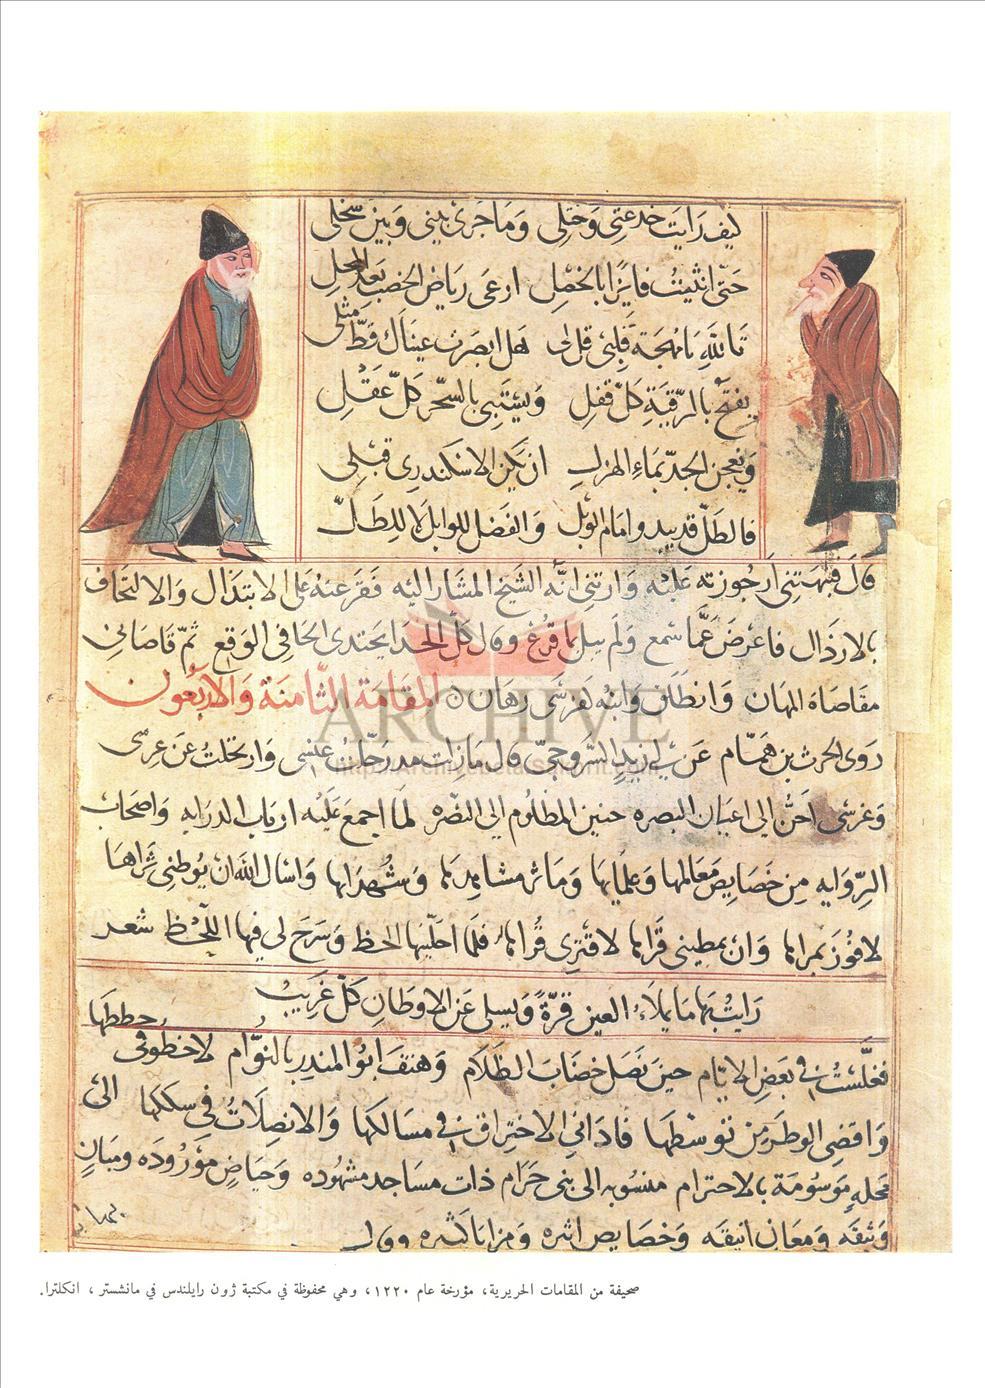 كيف رأيت خدعتي وختلي وما جرى بيني وبين سخلي
حتى انثنيت فايزا بالخصل ارعى رياض الخصب بعد المحل
تالله يا مهجة قلبي قل لي هل ابصرت عيناك قط مثلي
يفتح بالرقية كل قفل ويستبي بالسحر كل عقل
ويعجن الجد بماء الهزل ان يكن الاسكندري قبلي
فالطل قد يبدو امام الوبل والفضل للوابل لا للطل
قال فنبهتني ارجوزته عليه وارتني انه الشيخ المشار اليه فقرعته على الابتذال والالتحاق
بالارذال فاعرض عما سمع ولم يبل بما قرع وقال كل الحذا يحتذى الحافي الوقع ثم قاصاني
مقاصاة المهان وانطلق وابنه كفرسي رهان المقامة الثامنة والاربعون
روى الحرث بن همام عن ابي زيد السروجي قال ما زلت مذ رحلت عنسي وارتحلت عن عرسي
وغرسي احن الى اعيان البصره حنين المظلوم الى النصره لما اجمع عليه ارباب الدرايه واصحاب
الروايه من خصايص معالمها وعلمايها وماثر مشاهدها وشهدايها واسال الله ان يوطئني ثراها
لافوز بمراها وان يمطيني قراها لاقتري قراها فلما احلنيها الحظ وسرح لي فيها اللحظ شعر
رايت بها ما يملاء العين قرة ويسلي عن الاوطان كل غريب
فغلست في بعض الايام حين نصل خضاب الظلام وهتف ابو المنذر بالنوام لاخطو في خططها
واقضي الوطر من توسطها فاداني الاختراق في مسالكها والانصلات في سككها الى
محله موسومة بالاحترام منسوبه الى بني حرام ذات مساجد مشهوده وحياض موروده ومبان
وثيقه ومغان انيقه وخصايص اثيره ومزايا كثيره
ARCHIVE
صحيفة من المقامات الحريرية، مؤرخة عام ١٢٢٠، وهي محفوظة في مكتبة ژون رايلندس في مانشستر، انكلترا.